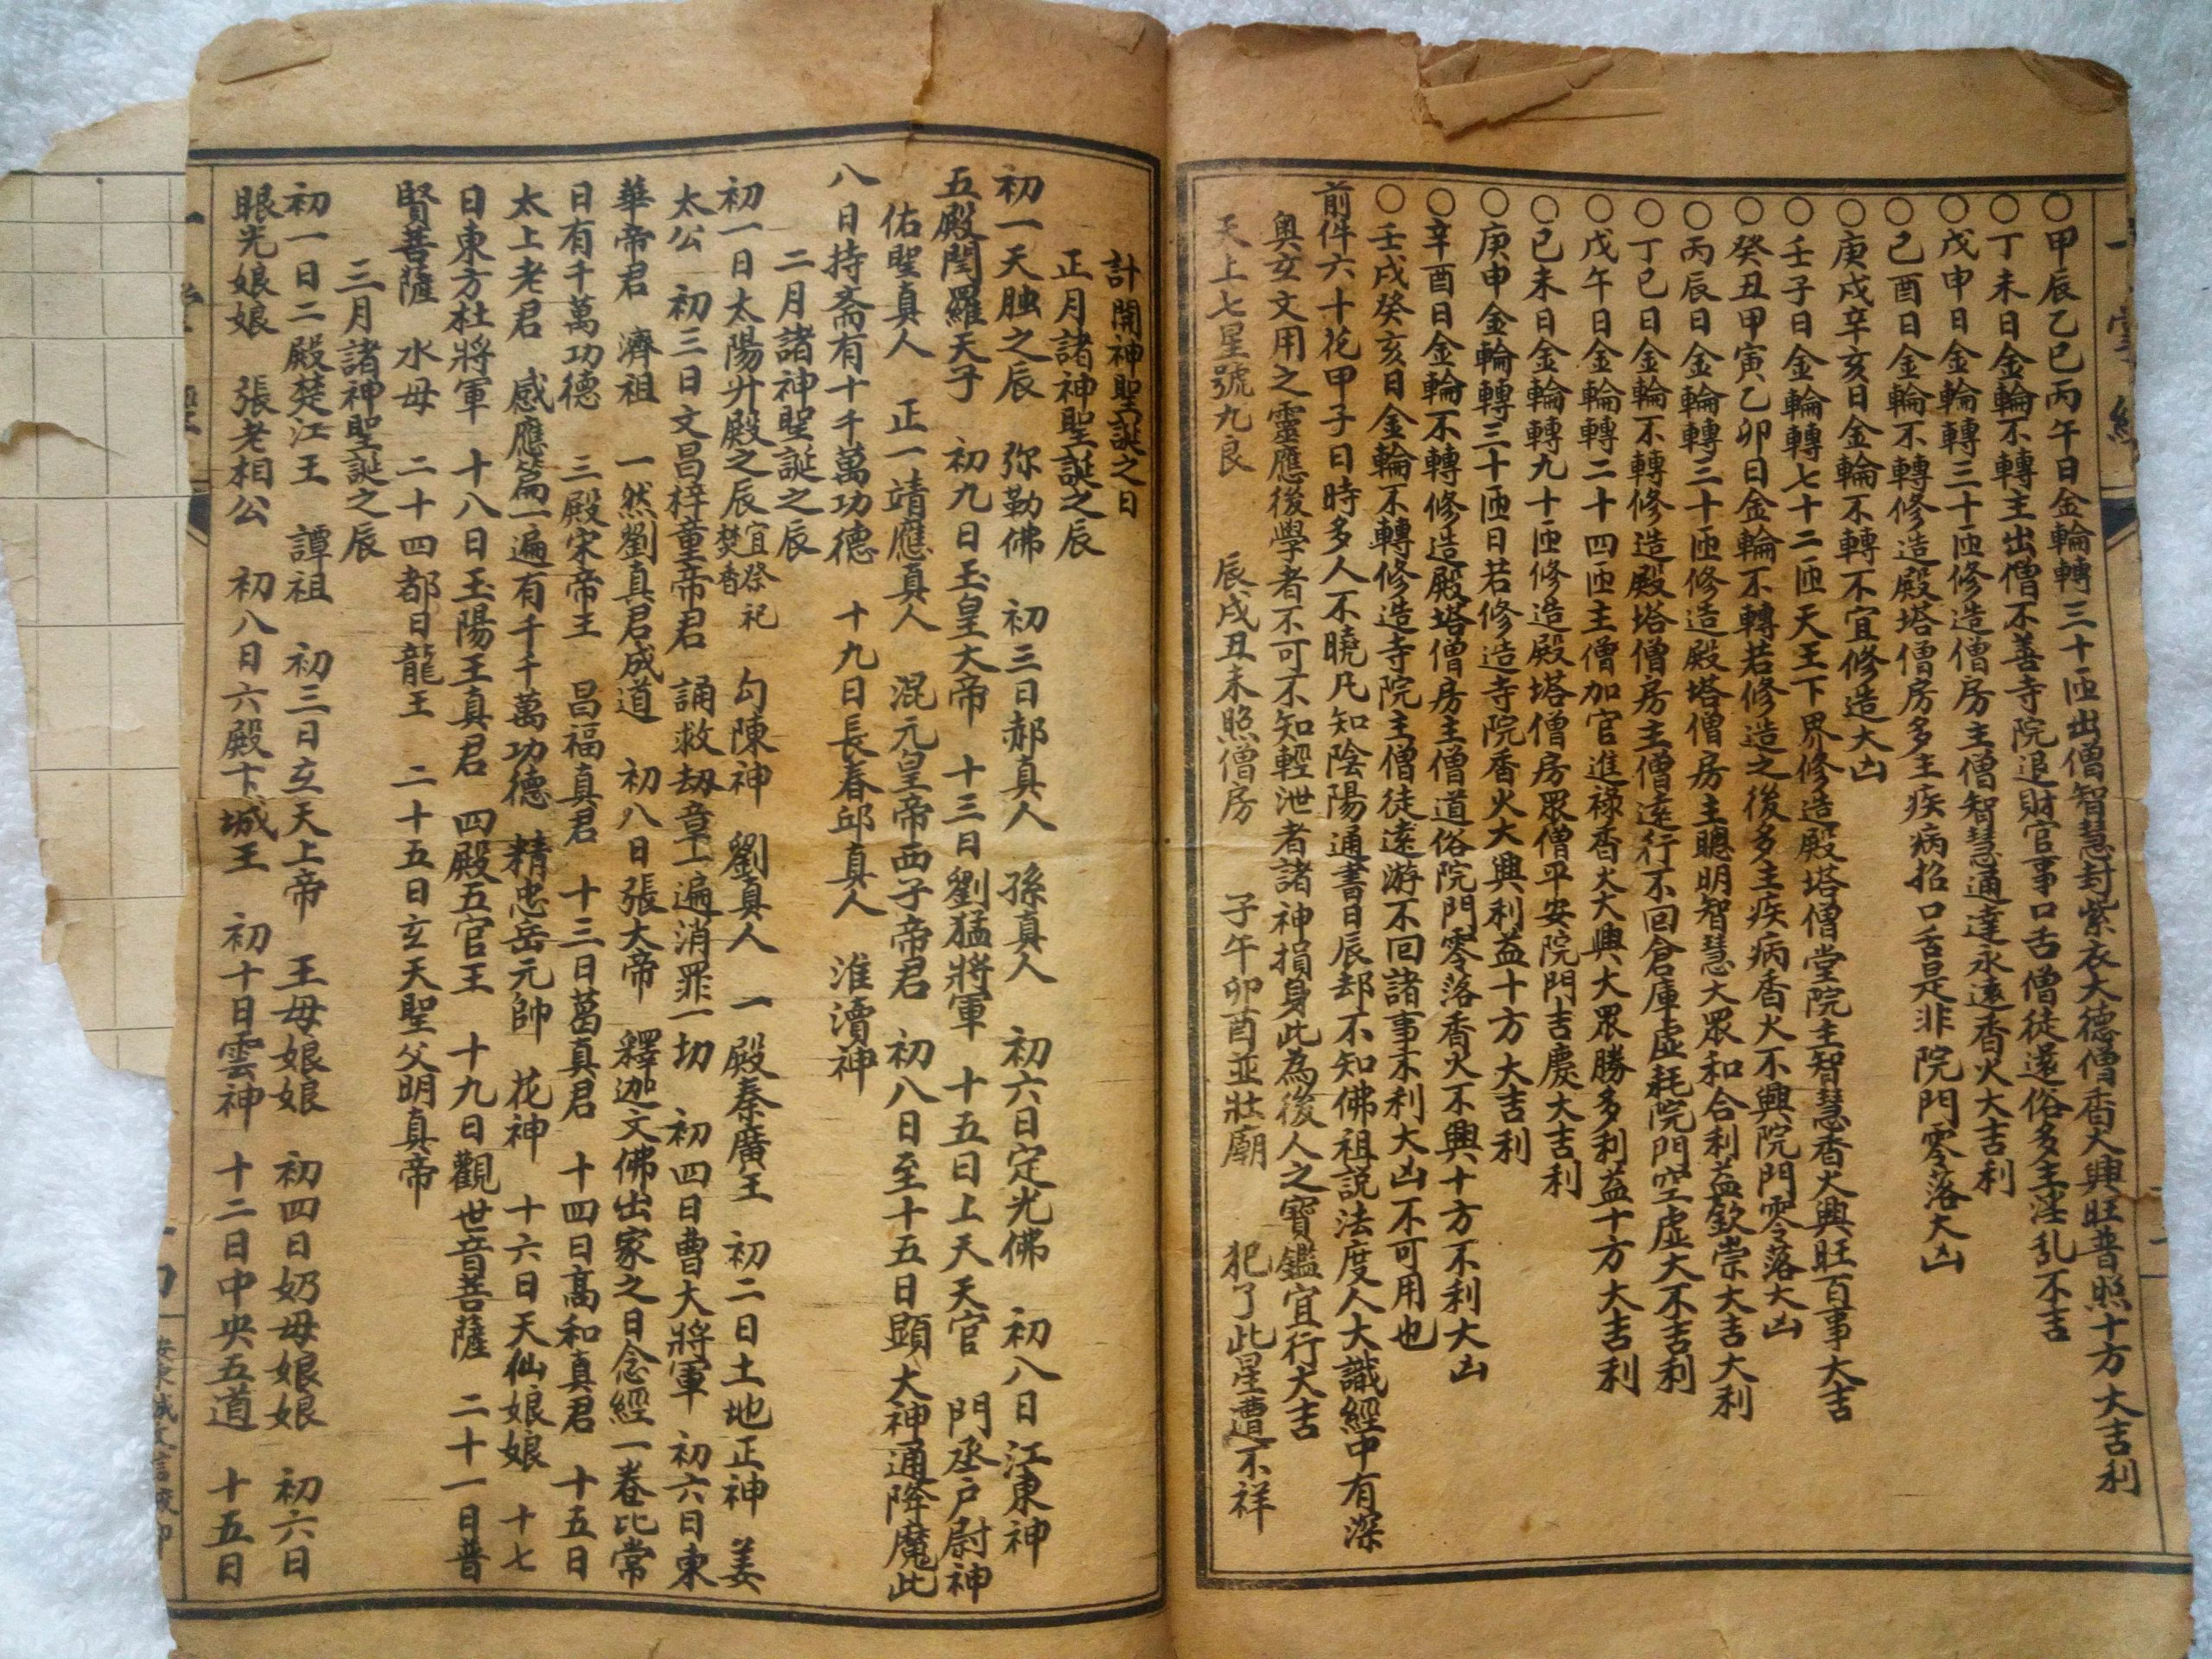 ○甲辰乙巳丙午日金輪轉三十匝出僧智慧封紫衣大德僧香火興旺普照十方大吉利
○丁未日金輪不轉主出僧不善寺院退財官事口舌僧徒還俗多主淫乱不吉
○戊申日金輪轉三十匝修造僧房主僧智慧通達永遠香火大吉利
○己酉日金輪不轉修造殿塔僧房多主疾病招口舌是非院門零落大凶
○庚戌辛亥日金輪不轉不宜修造大凶
○壬子日金輪轉七十二匝天王下界修造殿塔僧堂院主智慧香火興旺百事大吉
○癸丑甲寅乙卯日金輪不轉若修造之後多主疾病香火不興院門零落大凶
○丙辰日金輪轉三十匝修造殿塔僧房主聰明智慧大眾和合利益欽崇大吉大利
○丁巳日金輪不轉修造殿塔僧房主僧遠行不回倉庫虛耗院門空虛大不吉利
○戊午日金輪轉二十四匝主僧加官進祿香火大興大眾勝多利益十方大吉利
○己未日金輪轉九十匝修造殿塔僧房眾僧平安院門吉慶大吉利
○庚申金輪轉三十匝日若修造寺院香火大興利益十方大吉利
○辛酉日金輪不轉修造殿塔僧房主僧道俗院門零落香火不興十方不利大凶
○壬戌癸亥日金輪不轉修造寺院主僧徒遠游不回諸事不利大凶不可用也
前件六十花甲子日時多人不曉凡知陰陽通書日辰却不知佛祖説法度人大識經中有深
奥玄文用之靈應後學者不可不知輕泄者諸神損身此為後人之寳鑑宜行大吉
天上七星號九良 辰戌丑未照僧房 子午卯酉並壯廟 犯了此星遭不祥
計開神聖誕之日
正月諸神聖誕之辰
初一天臘之辰 弥勒佛 初三日郝真人 孫真人 初六日定光佛 初八日江東神
五殿閻羅天子 初九日玉皇大帝 十三日劉猛將軍 十五日上天天官 門丞户尉神
佑聖真人 正一靖應真人 混元皇帝西子帝君 初八日至十五日顕大神通降魔此
八日持斋有十千萬功德 十九日長春邱真人 淮瀆神
二月諸神聖誕之辰
初一日太陽升殿之辰宜祭祀焚香 勾陳神 劉真人 一殿秦廣王 初二日土地正神 姜
太公 初三日文昌梓童帝君 誦救劫章一遍消罪一切 初四日曹大將軍 初六日東
華帝君 濟祖 一然劉真君成道 初八日張大帝 釋迦文佛出家之日念經一卷比常
日有千萬功德 三殿宋帝王 昌福真君 十三日葛真君 十四日高和真君 十五日
太上老君 感應篇一遍有千千萬功德 精忠岳元帥 花神 十六日天仙娘娘 十七
日東方杜將軍 十八日玉陽王真君 四殿五官王 十九日觀世音菩薩 二十一日普
賢菩薩 水母 二十四都日龍王 二十五日玄天聖父明真帝
三月諸神聖誕之辰
初一日二殿楚江王 譚祖 初三日玄天上帝 王母娘娘 初四日奶母娘娘 初六日
眼光娘娘 張老相公 初八日六殿卞城王 初十日雲神 十二日中央五道 十五日